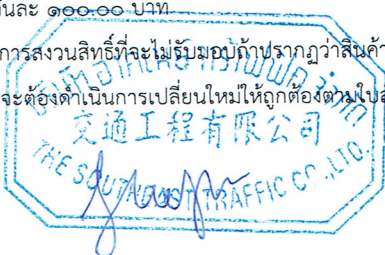 ันละ ๑๐๐.๐๐ บาท
การสงวนสิทธิ์ที่จะไม่รับมอบถ้าปรากฏว่าสินค้า
จะต้องดำเนินการเปลี่ยนใหม่ให้ถูกต้องตามใบส
交通工程有限公司
THE SOUTHEAST TRAFFIC CO.,LTD.